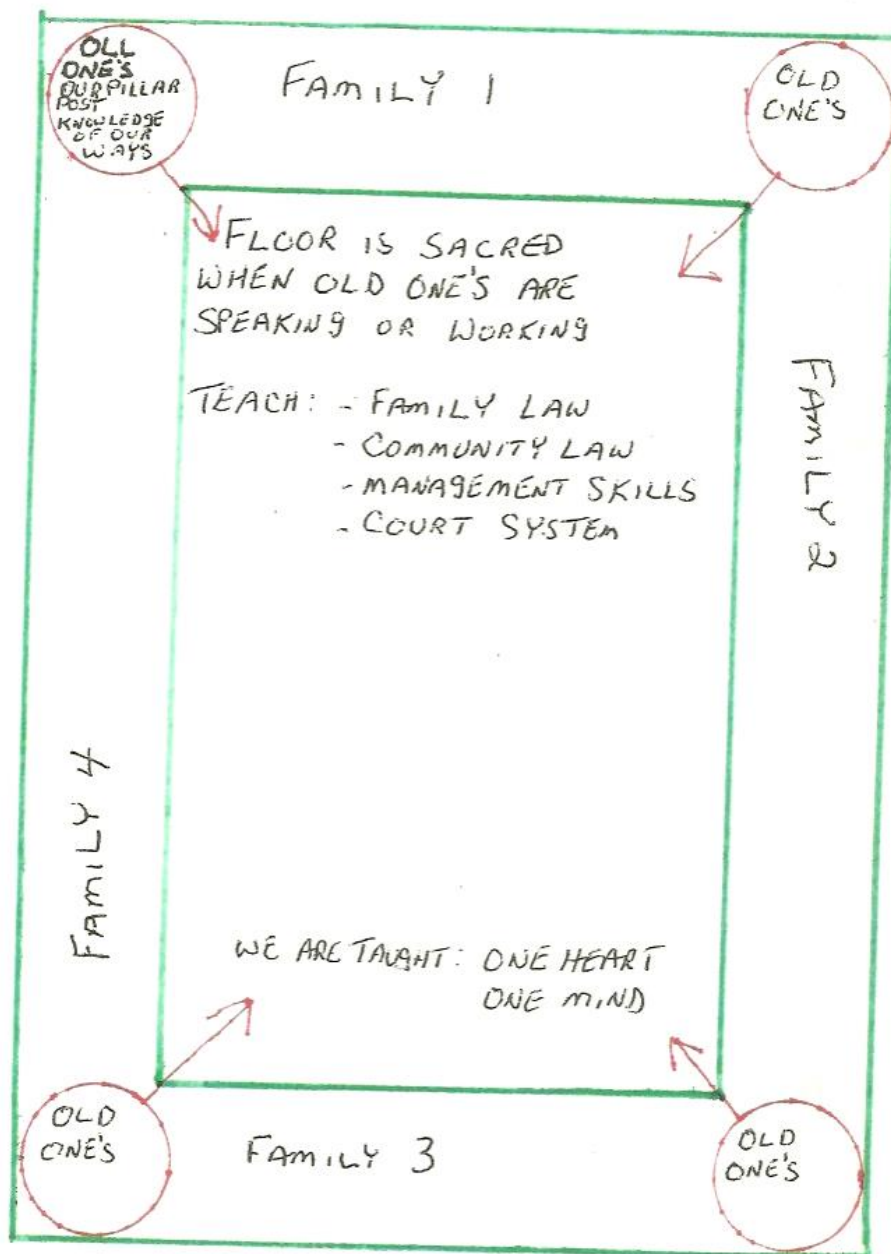 OLL
ONE'S
OUR PILLAR
POST
KNOWLEDGE
OF OUR
WAYS
FAMILY 1
OLD
ONE'S
FLOOR IS SACRED
WHEN OLD ONE'S ARE
SPEAKING OR WORKING
TEACH: - FAMILY LAW
- COMMUNITY LAW
- MANAGEMENT SKILLS
- COURT SYSTEM
FAMILY 2
FAMILY 4
WE ARE TAUGHT: ONE HEART
ONE MIND
OLD
ONE'S
FAMILY 3
OLD
ONE'S